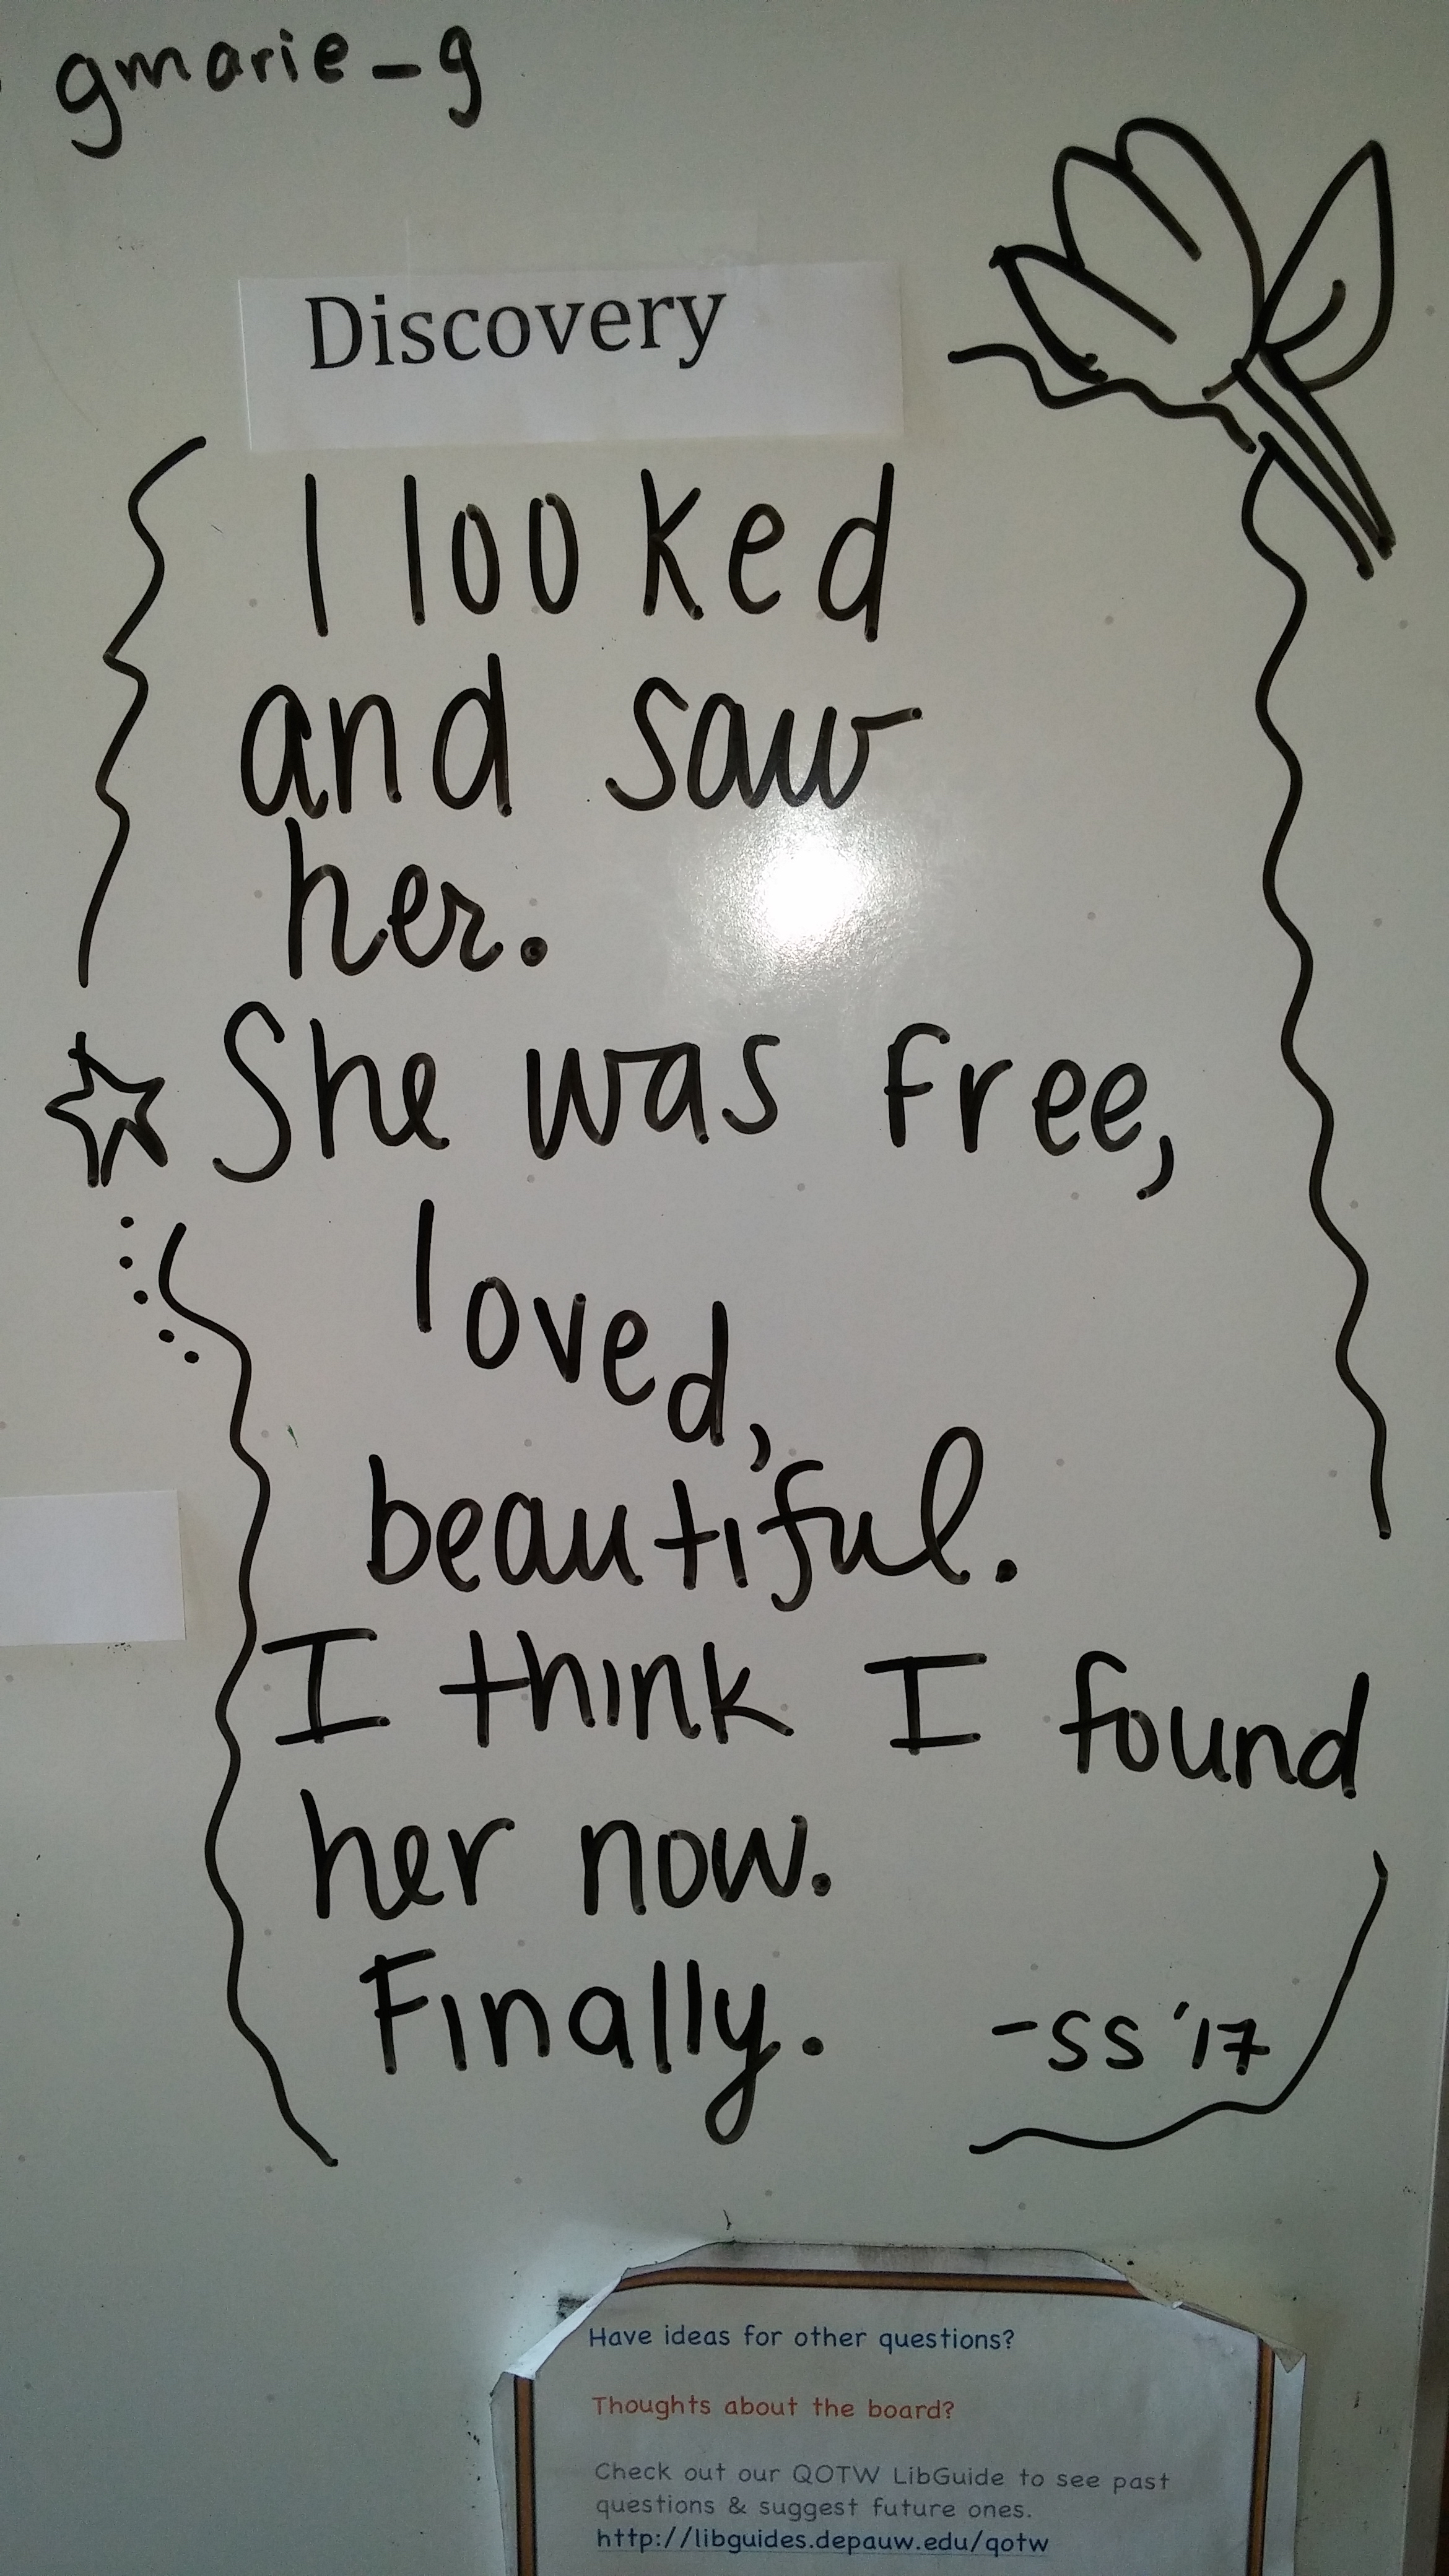 gmarie_g
Discovery
I looked
and saw
her.
She was free,
loved,
beautiful.
I think I found
her now.
Finally.
-SS '17
Have ideas for other questions?
Thoughts about the board?
Check out our QOTW LibGuide to see past
questions & suggest future ones.
http://libguides.depauw.edu/qotw